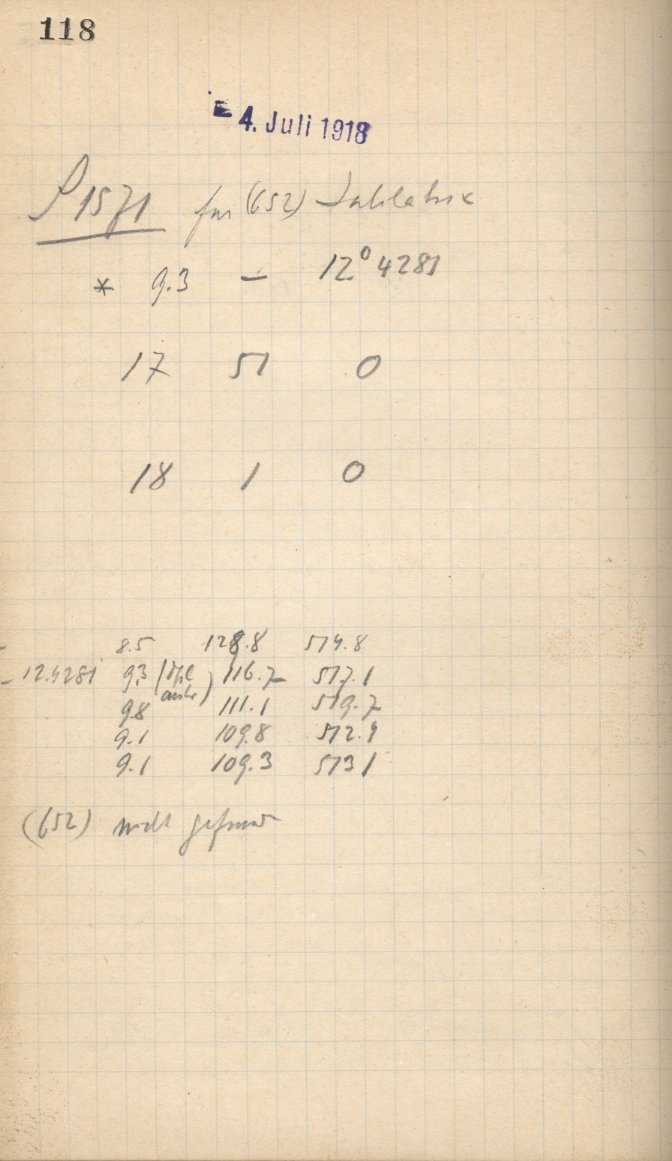 118
- 4. Juli 1918
P 1571 für (652) Jubilatrix
* 9.3 – 12° 4281
17 51 0
18 1 0
8.5 128.8 574.8
-12.4281 9.3 ( ) 116.7 577.1
9.8 111.1 579.7
9.1 109.8 572.9
9.1 109.3 573.1
(652) nicht gefunden